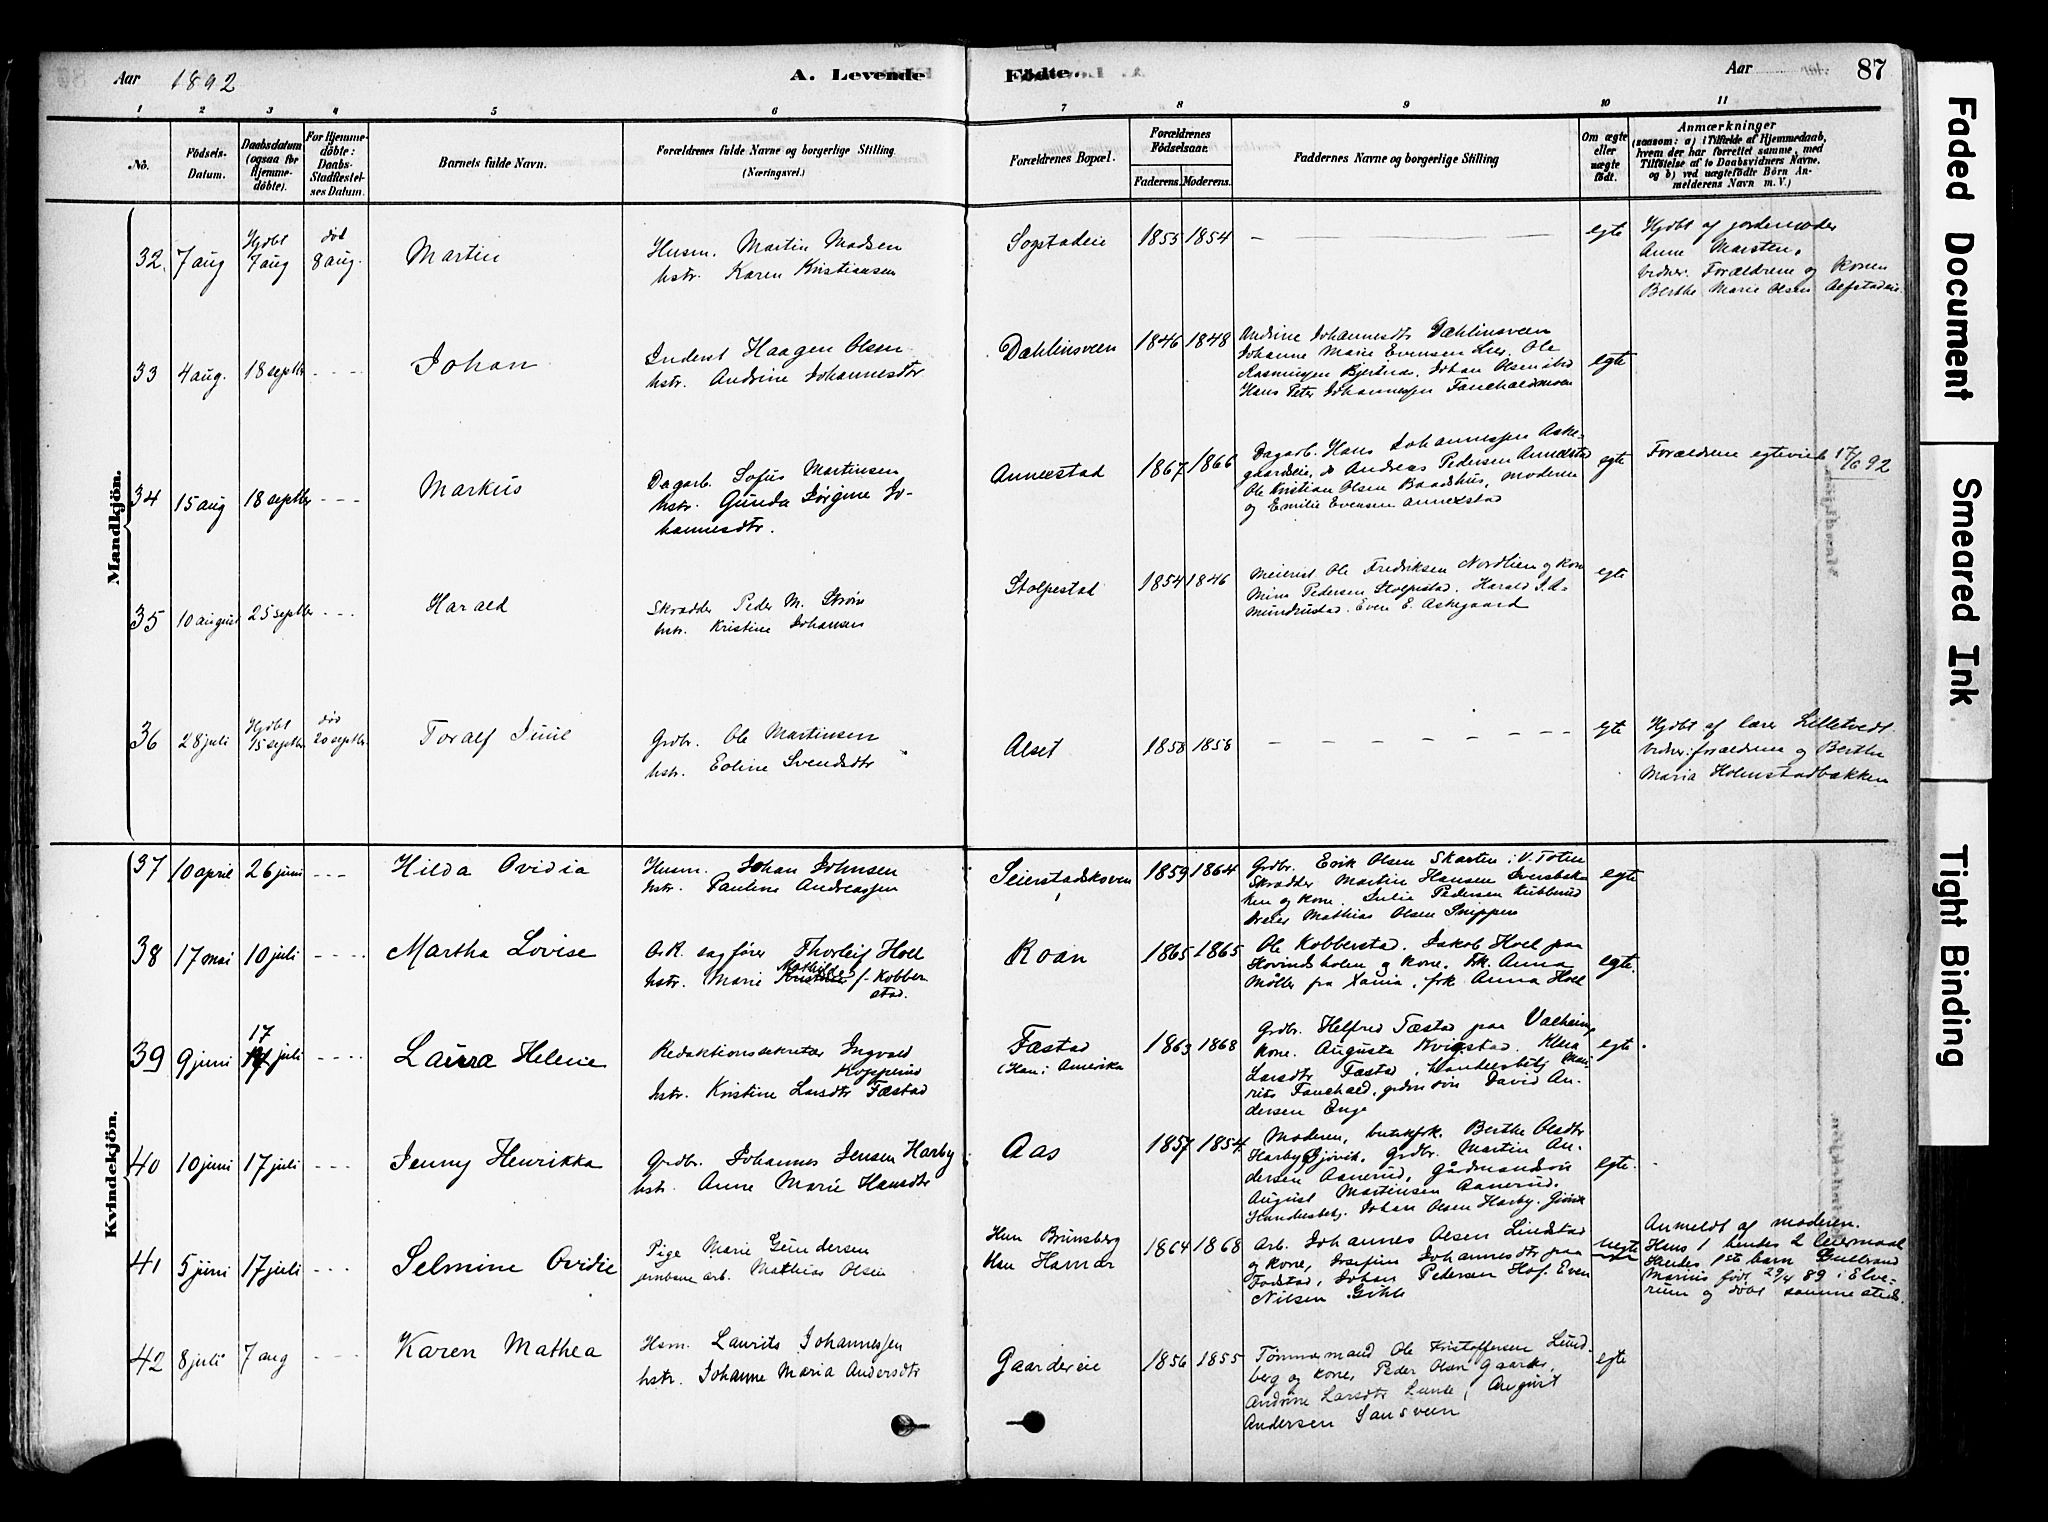 Aar 1892
A. Levende
Födte.
Aar
87
1 2 3 4 5 6 7 8 9 10 11
No.
Födsels-Datum.
Daabsdatum (ogsaa for Hjemme-döbte).
For Hjemme-döbte: Daabs-Stadfæstel-ses Datum.
Barnets fulde Navn.
Forældrenes fulde Navne og borgerlige Stilling (Næringsvei.)
Forældrenes Bopæl.
Forældrenes Födselsaar.
Faderens. Moderens.
Faddernes Navne og borgerlige Stilling
Om ægte eller uægte födt.
Anmærkninger
(saasom: a) i Tilfælde af Hjemmedaab,
hvem der har forrettet samme, med
Tilföielse af to Daabsvidners Navne.
og b) ved uægtefödte Börn An-
melderens Navn m. V.)
Mandkjön.
32. 7 aug
Hjdbt 7 aug
död 8 aug.
Martin
Husm. Martin Madsen
hstr. Karen Kristiansen
Sogstadeie
1855 1854
egte
Hjdbt af jordemoder
Anne Marsten.
vidner. Forældrene og Konen
Berthe Marie Olsen
33 4 aug. 18 septbr
Johan
Inderst Haagen Olsen
hstr. Andrine Johannesdtr
Dæhlinsveen
1846 1848
Andrine Johannesdtr Dæhlinsveen
Johanne Marie Evensen Ole
Rasmussen Johan Olsen ibid
Hans Peter Johannessen
egte
34 15 aug 18 septbr
Markus
Dagarb. Sofus Martinsen
hstr. Gunda Jörgine Jo-
hannesdtr.
Annexstad
1867 1866
Dagarb. Hans Johannessen Aske-
gaardseie, do Andreas Pedersen Annexstad
Ole Kristian Olsen Baadshus, moderen
og Emilie Evensen Annexstad
egte
Forældrene egteviede 17/6 92
35 10 august 25 septbr
Harald
Skrædder Peder M. Ström
hstr. Kristine Johansen
Stolpestad
1854 1846
Meierist Ole Fredriksen Nordlien og kone
Mina Pedersen Stolpestad. Harald
Even E. Askegaard
egte
36 28 juli
Hjdbt 15 septbr
död 20 septbr
Toralf Juul
Grdbr. Ole Martinsen
hstr. Eoline Svendsdtr
Alset
1858 1858
egte
Hjdbt af lærer Lilletvedt
vidner: forældrene og Berthe
Maria Holmstadbakken
Kvindekjön.
37 10 april 26 juni
Hilda Ovidia
Husm. Johan Johnsen
hstr. Pauline Andreassen
Seierstadskoven
1859 1864
Grdbr. Erik Olsen Skarten i V. Toten
Skrædder Martin Hansen Sversbak-
ken og kone. Julie Pedersen Kubberud
Mathias Olsen Snippen
egte
38 17 mai 10 juli
Martha Lovise
O.R. sagförer Thorleif Hoel
hstr. Marie Mathilde f. Kobber-
stad.
Roan
1865 1865
Ole Kobberstad. Jakob Hoel paa
Hovindsholm og kone, Frk. Anna
Möller fra Xania, frk Anna Hoel
egte.
39 9 juni 17 juli
Laura Helene
Redaktionssekretær Ingvald
Kopperud
hstr. Kristine Larsdtr Fæstad
Fæstad
(Han i Amerika
1863 1868
Grdbr. Helfred Fæstad paa Valheim,
kone. Augusta Kvigstad. Klara
Larsdtr Fæstad, handelsbetj
David An-
dersen Enge
egte
40 10 juni 17 juli
Jenny Henrikka
Grdbr. Johannes Jensen Harby
hstr. Anne Marie Hansdtr
Aas
1857 1854
Moderen, butikfrk. Berthe Olsdtr
Harby Gjövik, Grdbr. Martin An-
dersen Aanerud, Gårdmandsön
August Martinsen Aanerud.
Handelsbetj. Johan Olsen Harby, Gjövik
egte.
41 5 juni 17 juli
Selmine Ovidie
Pige Marie Gundersen
jernbane arb. Mathias Olsen
Hun Brunsberg
Han Hamar
1864 1868
Arb. Johannes Olsen Lundstad
og kone, Josefine Johannesdtr paa
Fodstad, Johan Pedersen Hof. Even
Nilsen Gihle
uegte
Anmeldt af moderen.
Hans 1 hendes 2 leiermaal
Hendes 1ste barn Gulbrand
Marius född 29/4 89 i Elve-
rum og döbt samme steds.
42 8 juli 7 aug
Karen Mathea
Hsm. Laurits Johannessen
hstr. Johanne Maria Andersdtr
Gaardereie
1856 1855
Tömmermand Ole Kristoffersen Lund-
berg og kone, Peder Olsen Gaarder,
Andrine Larsdtr Lunde, August
Andersen Sansveen
egte
Faded Document
Smeared Ink
Tight Binding